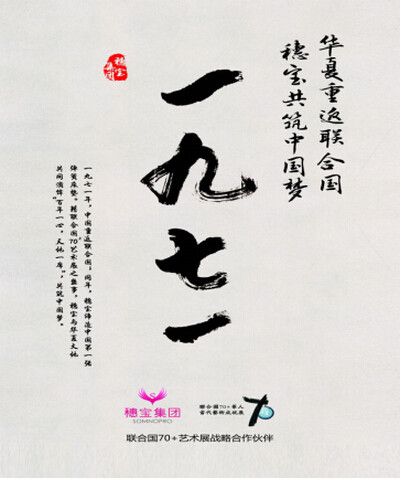 华夏重返联合国
穗宝共筑中国梦
一九七一
穗宝集团
一九七一年，中国重返联合国；同年，穗宝缔造中国第一张
弹簧床垫。联合国"70+"艺术展之盛事，穗宝与华夏文化
共同演绎"百年一心，天地一席"，共筑中国梦。
穗宝集团
SOMNOPRO
聯合国70+華人
當代藝術成就展
70
联合国70+艺术展战略合作伙伴